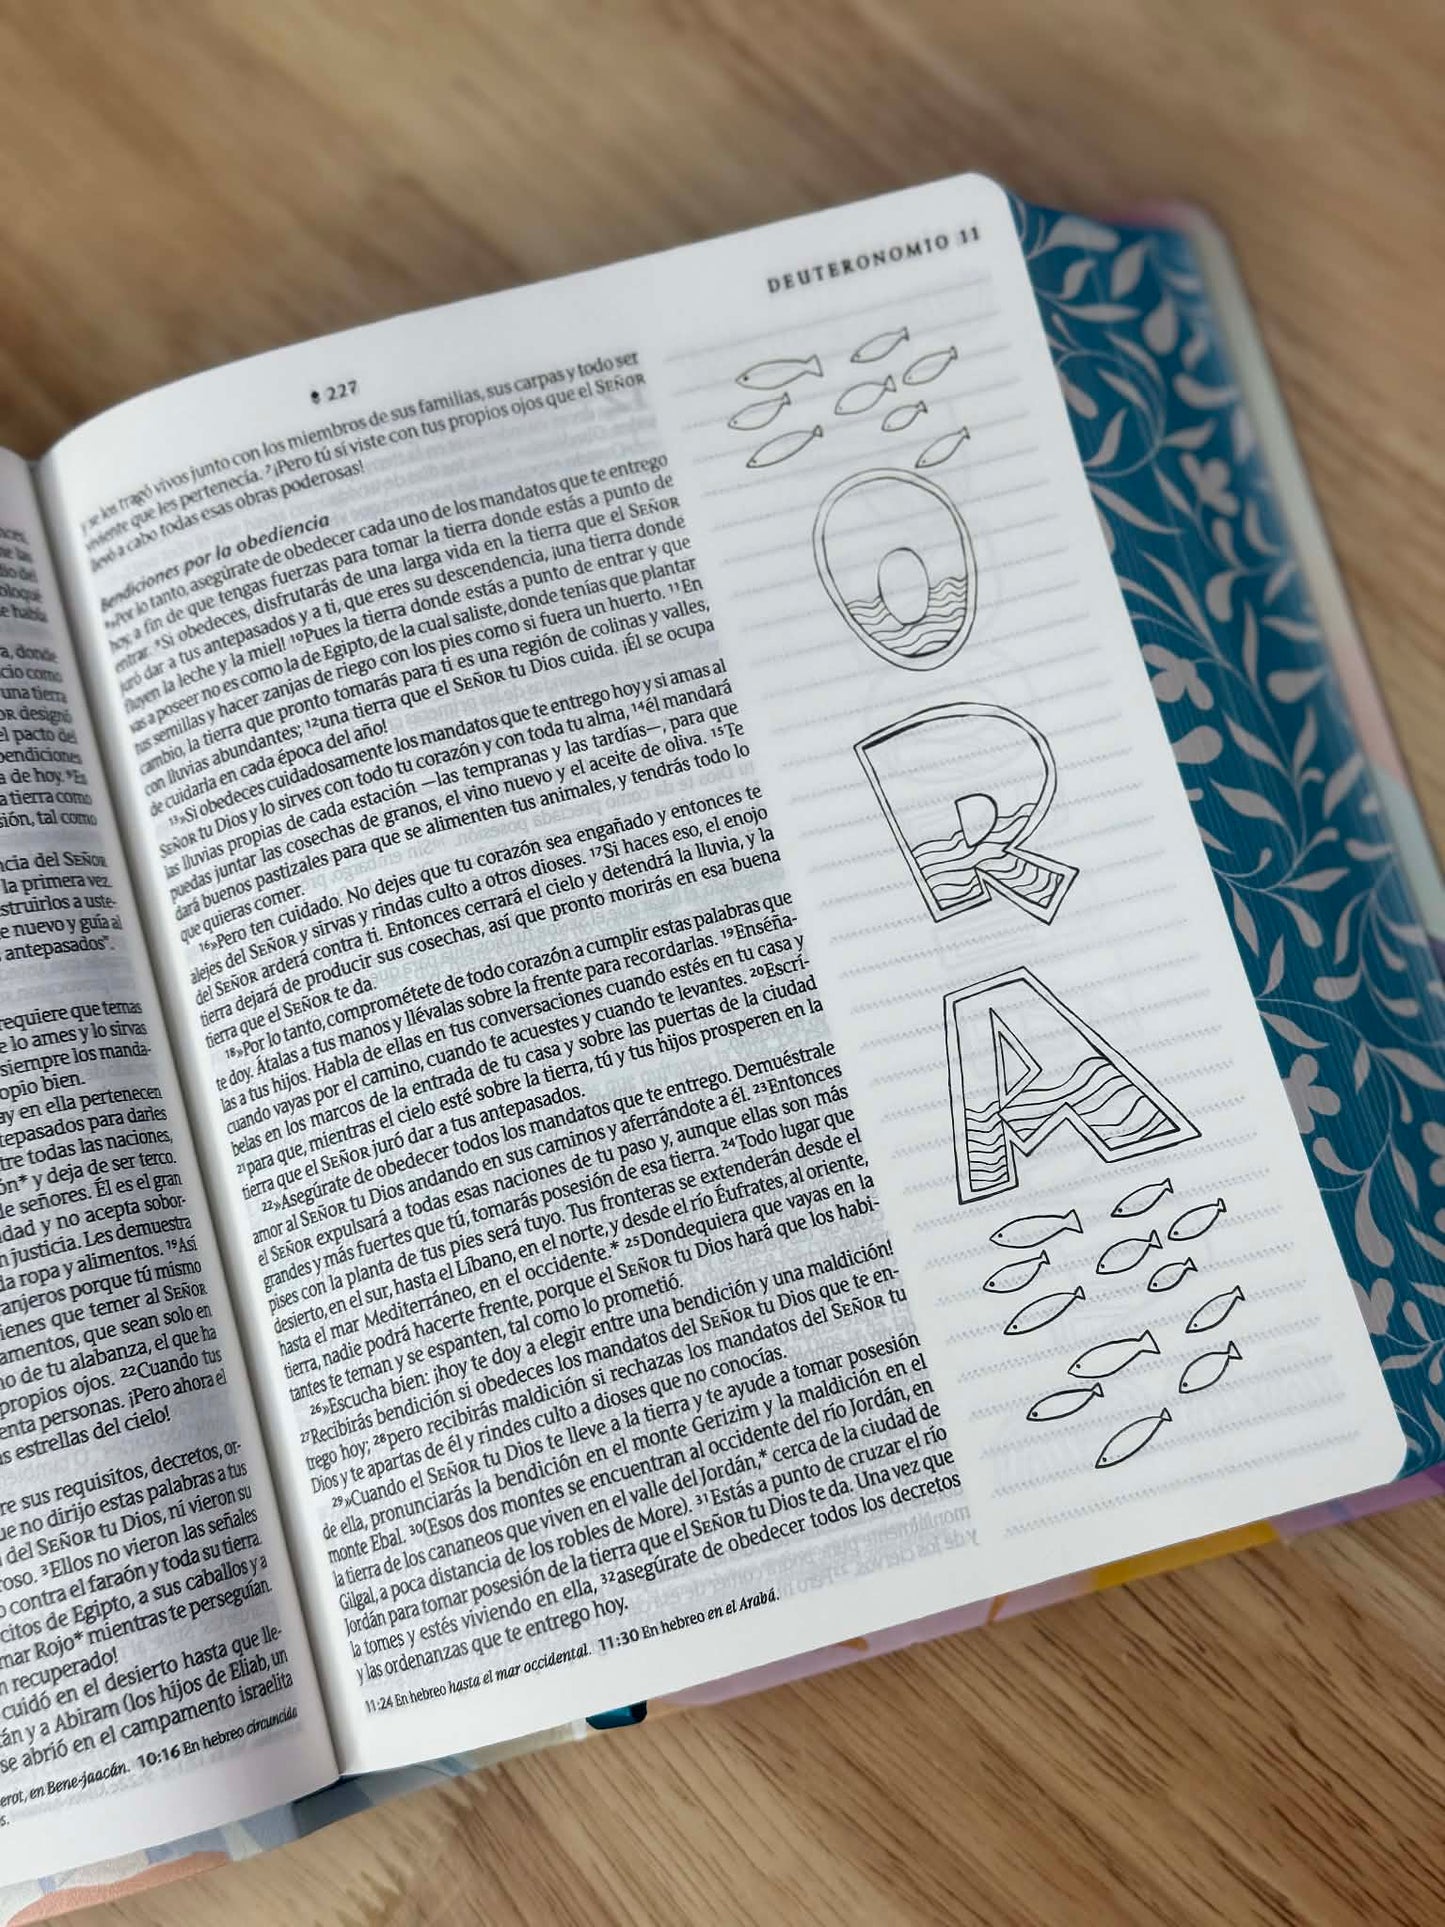 me las
dio del
bloque
e había
a, donde
cio como
una tierra
OR designó
el pacto del
bendiciones
a de hoy. ⁹En
a tierra como
sión, tal como
ncia del SEÑOR
la primera vez.
struirlos a uste-
e nuevo y guía al
antepasados”.
requiere que temas
e lo ames y lo sirvas
siempre los manda-
opio bien.
ay en ella pertenecen
tepasados para darles
tre todas las naciones,
ón* y deja de ser terco.
de señores. Él es el gran
idad y no acepta sobor-
n justicia. Les demuestra
da ropa y alimentos. ¹⁹Así
anjeros porque tú mismo
ienes que temer al SEÑOR
amentos, que sean solo en
no de tu alabanza, el que ha
propios ojos. ²²Cuando tus
enta personas. ¡Pero ahora el
as estrellas del cielo!
re sus requisitos, decretos, or-
ue no dirijo estas palabras a tus
del SEÑOR tu Dios, ni vieron su
roso. ³Ellos no vieron las señales
o contra el faraón y toda su tierra.
citos de Egipto, a sus caballos y a
mar Rojo* mientras te perseguían.
n recuperado!
cuidó en el desierto hasta que lle-
tán y a Abiram (los hijos de Eliab, un
se abrió en el campamento israelita
erot, en Bene-jaacán. 10:16 En hebreo circuncida
s.
227
DEUTERONOMIO 11
y se los tragó vivos junto con los miembros de sus familias, sus carpas y todo ser
viviente que les pertenecía. ⁷¡Pero tú sí viste con tus propios ojos que el SEÑOR
llevó a cabo todas esas obras poderosas!
Bendiciones por la obediencia
⁸»Por lo tanto, asegúrate de obedecer cada uno de los mandatos que te entrego
hoy, a fin de que tengas fuerzas para tomar la tierra donde estás a punto de
entrar. ⁹Si obedeces, disfrutarás de una larga vida en la tierra que el SEÑOR
juró dar a tus antepasados y a ti, que eres su descendencia, ¡una tierra donde
fluyen la leche y la miel! ¹⁰Pues la tierra donde estás a punto de entrar y que
vas a poseer no es como la de Egipto, de la cual saliste, donde tenías que plantar
tus semillas y hacer zanjas de riego con los pies como si fuera un huerto. ¹¹En
cambio, la tierra que pronto tomarás para ti es una región de colinas y valles,
con lluvias abundantes; ¹²una tierra que el SEÑOR tu Dios cuida. ¡Él se ocupa
de cuidarla en cada época del año!
¹³»Si obedeces cuidadosamente los mandatos que te entrego hoy y si amas al
SEÑOR tu Dios y lo sirves con todo tu corazón y con toda tu alma, ¹⁴él mandará
las lluvias propias de cada estación —las tempranas y las tardías—, para que
puedas juntar las cosechas de granos, el vino nuevo y el aceite de oliva. ¹⁵Te
dará buenos pastizales para que se alimenten tus animales, y tendrás todo lo
que quieras comer.
¹⁶»Pero ten cuidado. No dejes que tu corazón sea engañado y entonces te
alejes del SEÑOR y sirvas y rindas culto a otros dioses. ¹⁷Si haces eso, el enojo
del SEÑOR arderá contra ti. Entonces cerrará el cielo y detendrá la lluvia, y la
tierra dejará de producir sus cosechas, así que pronto morirás en esa buena
tierra que el SEÑOR te da.
¹⁸»Por lo tanto, comprométete de todo corazón a cumplir estas palabras que
te doy. Átalas a tus manos y llévalas sobre la frente para recordarlas. ¹⁹Enséña-
las a tus hijos. Habla de ellas en tus conversaciones cuando estés en tu casa y
cuando vayas por el camino, cuando te acuestes y cuando te levantes. ²⁰Escrí-
belas en los marcos de la entrada de tu casa y sobre las puertas de la ciudad
²¹para que, mientras el cielo esté sobre la tierra, tú y tus hijos prosperen en la
tierra que el SEÑOR juró dar a tus antepasados.
²²»Asegúrate de obedecer todos los mandatos que te entrego. Demuéstrale
amor al SEÑOR tu Dios andando en sus caminos y aferrándote a él. ²³Entonces
el SEÑOR expulsará a todas esas naciones de tu paso y, aunque ellas son más
grandes y más fuertes que tú, tomarás posesión de esa tierra. ²⁴Todo lugar que
pises con la planta de tus pies será tuyo. Tus fronteras se extenderán desde el
desierto, en el sur, hasta el Líbano, en el norte, y desde el río Éufrates, al oriente,
hasta el mar Mediterráneo, en el occidente.* ²⁵Dondequiera que vayas en la
tierra, nadie podrá hacerte frente, porque el SEÑOR tu Dios hará que los habi-
tantes te teman y se espanten, tal como lo prometió.
²⁶»Escucha bien: ¡hoy te doy a elegir entre una bendición y una maldición!
²⁷Recibirás bendición si obedeces los mandatos del SEÑOR tu Dios que te en-
trego hoy; ²⁸pero recibirás maldición si rechazas los mandatos del SEÑOR tu
Dios y te apartas de él y rindes culto a dioses que no conocías.
²⁹»Cuando el SEÑOR tu Dios te lleve a la tierra y te ayude a tomar posesión
de ella, pronunciarás la bendición en el monte Gerizim y la maldición en el
monte Ebal. ³⁰(Esos dos montes se encuentran al occidente del río Jordán, en
la tierra de los cananeos que viven en el valle del Jordán,* cerca de la ciudad de
Gilgal, a poca distancia de los robles de More). ³¹Estás a punto de cruzar el río
Jordán para tomar posesión de la tierra que el SEÑOR tu Dios te da. Una vez que
la tomes y estés viviendo en ella, ³²asegúrate de obedecer todos los decretos
y las ordenanzas que te entrego hoy.
11:24 En hebreo hasta el mar occidental. 11:30 En hebreo en el Arabá.
O
R
A